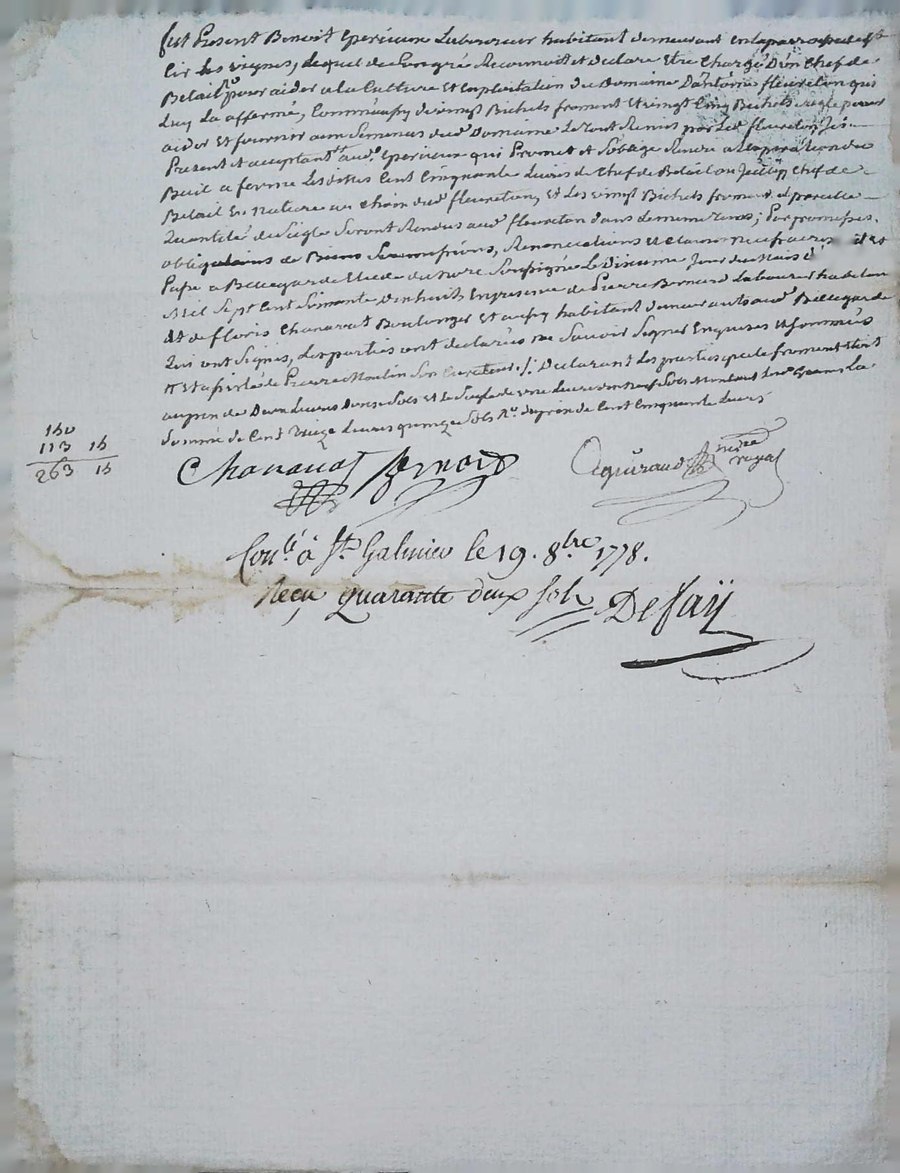 fut Present Benoit Epercieux Laboureur habitant demeurant en la parroisse de st
Cir les vignes, lequel de son gré Reconnoit et declare Etre Chargé D'un Chef de
Betail pour aider a la Culture et Exploitation du Domaine D'antoine fleureton qui
Luy La affermé, Comme aussy de vingt Bichets froment et vingt Cinq Bichets seigle pour
aider et fournir aux Semences dud Domaine Le tout Remis par Led fleureton, ici
Present et acceptant aud Epercieux qui Promet et s'oblige Rendre a L'expiration du
Bail a ferme Les dittes Cent Cinquante Livres de Chef de Betail ou Chef de
Betail En Nature au Choix dud fleureton, et Les vingt Bichets froment et pareille
Quantité de Seigle Seront Rendus aud fleureton dans Le meme tems; Par promesses,
obligations de Biens Soumissions, Renonciations et clauses fait et
Passé a Bellegarde Etude du nore Soussigné Le Dixieme Jour du Mois d'
Mil Sept Cent Soixante Dix huit En presence de Pierre Bernard Laboureur habitant
et de floris Chanavat Boulanger et aussy habitant demeurants aud Bellegarde
Qui ont Signés, Les parties ont declarées ne Savoir Signer Enquises et Sommées
de Pierre Moulin Son Curateur ./. Declarant Les parties que le froment
au prix de Deux Livres Douze Sols et Le Seigle de une Livre dix neuf Sols Montant Les Grains La
Somme de Cent Treize Livres quinze Sols du prix de Cent Cinquante Livres
150
113 15
263 15
Chanavat Bernard
Aguiraud nore royal
Conlé à St. Galmier le 19. 8bre 1778.
Reçu quarante deux sols Defaÿ